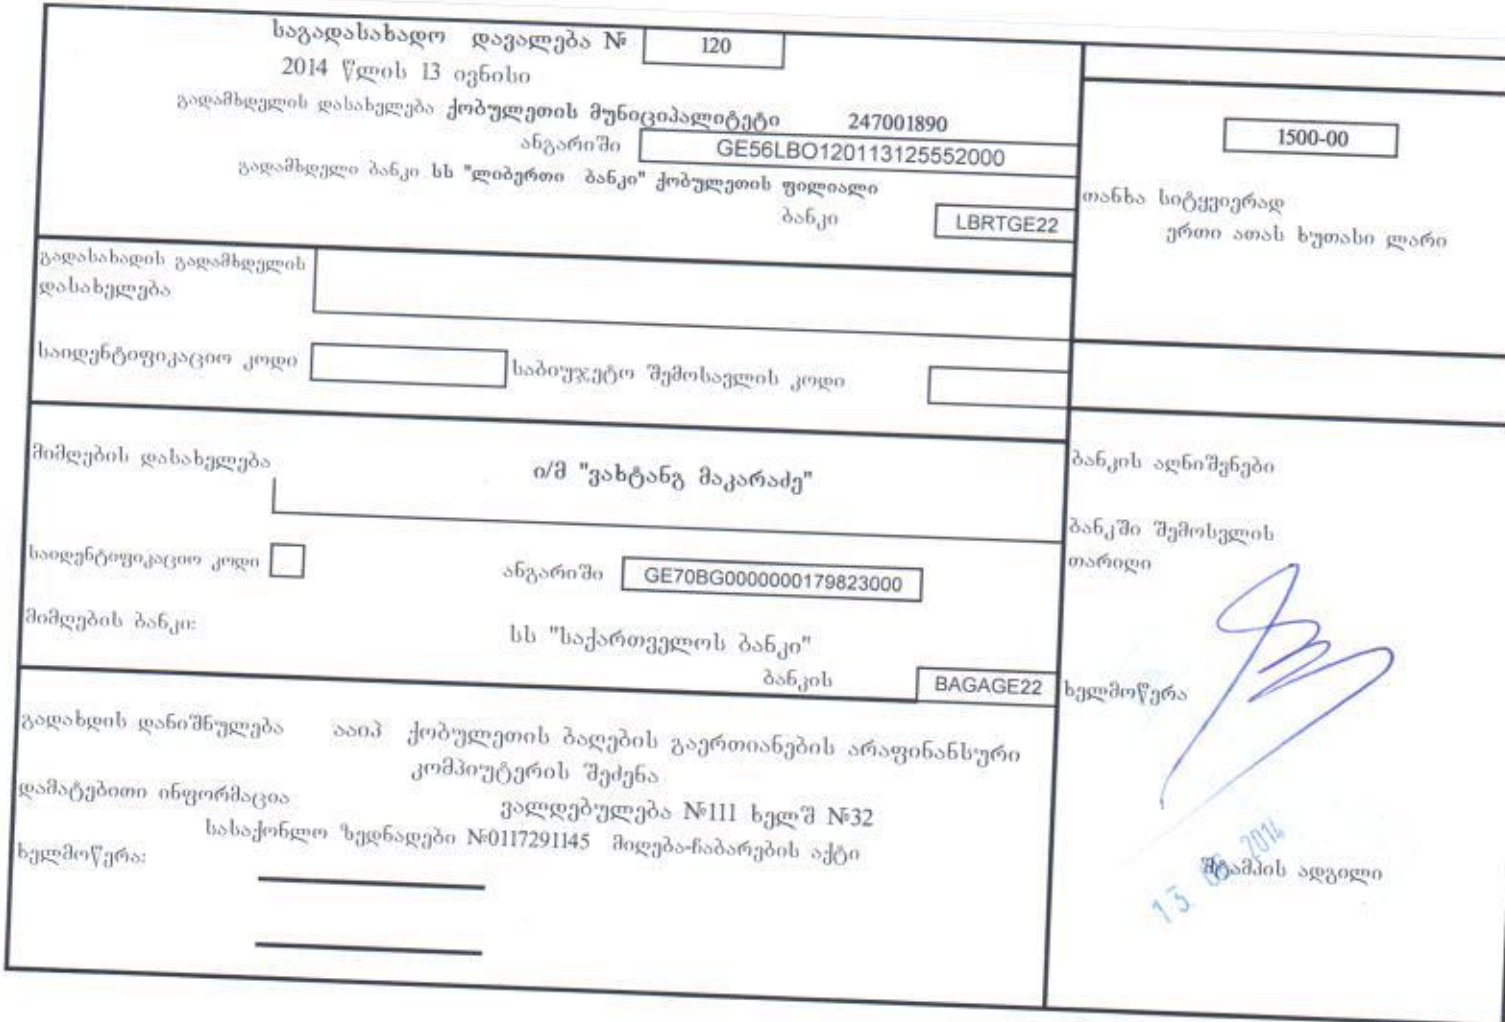 საგადასახადო დავალება № 120
2014 წლის 13 ივნისი
გადამხდელის დასახელება ქობულეთის მუნიციპალიტეტი 247001890
ანგარიში GE56LBO120113125552000
გადამხდელი ბანკი სს "ლიბერთი ბანკი" ქობულეთის ფილიალი
ბანკი LBRTGE22
1500-00
თანხა სიტყვიერად
ერთი ათას ხუთასი ლარი
გადასახადის გადამხდელის
დასახელება
საიდენტიფიკაციო კოდი საბიუჯეტო შემოსავლის კოდი
მიმღების დასახელება ი/მ "ვახტანგ მაკარაძე"
საიდენტიფიკაციო კოდი ანგარიში GE70BG0000000179823000
მიმღების ბანკი: სს "საქართველოს ბანკი"
ბანკის BAGAGE22
ბანკის აღნიშვნები
ბანკში შემოსვლის
თარიღი
ხელმოწერა
გადახდის დანიშნულება ააიპ ქობულეთის ბაღების გაერთიანების არაფინანსური
კომპიუტერის შეძენა
დამატებითი ინფორმაცია ვალდებულება №111 ხელშ №32
სასაქონლო ზედნადები №0117291145 მიღება-ჩაბარების აქტი
ხელმოწერა:
13 06 2014
შტამპის ადგილი